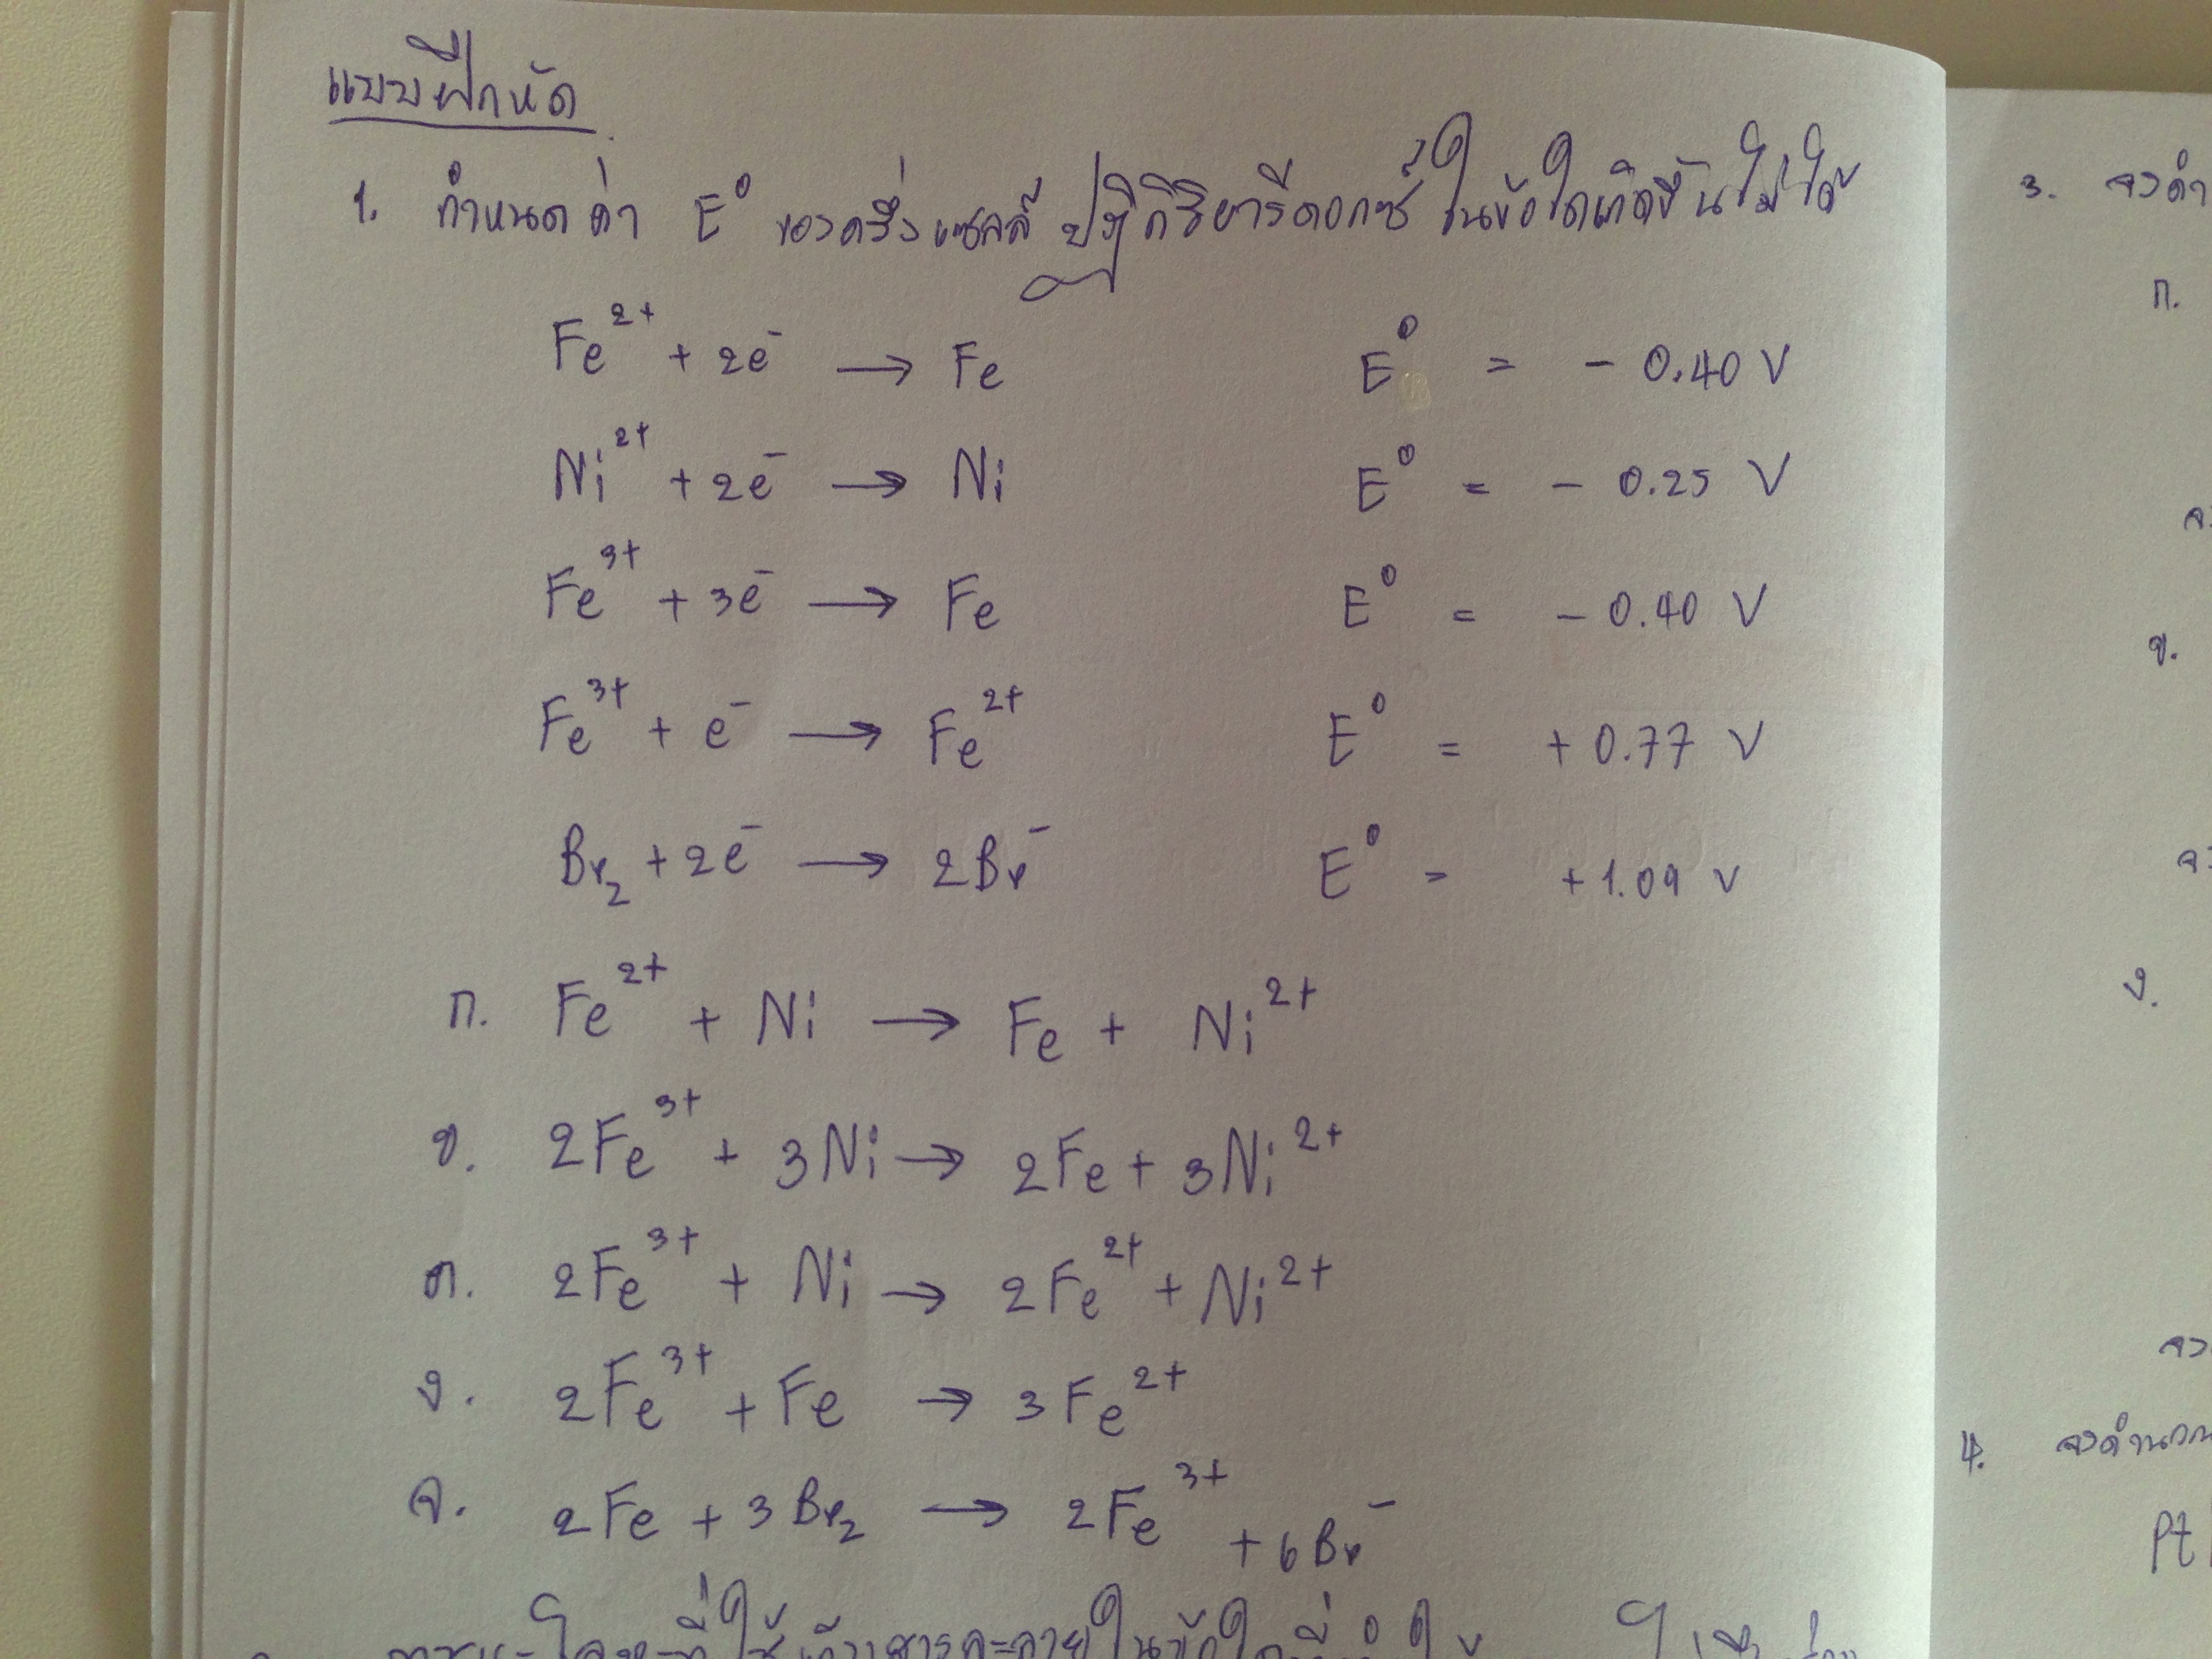 แบบฝึกหัด
1. กำหนดค่า E⁰ ของครึ่งเซลล์ ปฏิกิริยารีดอกซ์ในข้อใดเกิดขึ้นไม่ได้
Fe²⁺ + 2e⁻ → Fe E⁰ = - 0.40 V
Ni²⁺ + 2e⁻ → Ni E⁰ = - 0.25 V
Fe³⁺ + 3e⁻ → Fe E⁰ = - 0.40 V
Fe³⁺ + e⁻ → Fe²⁺ E⁰ = + 0.77 V
Br₂ + 2e⁻ → 2Br⁻ E⁰ = +1.09 V
ก. Fe²⁺ + Ni → Fe + Ni²⁺
ข. 2Fe³⁺ + 3Ni → 2Fe + 3Ni²⁺
ค. 2Fe³⁺ + Ni → 2Fe²⁺ + Ni²⁺
ง. 2Fe³⁺ + Fe → 3Fe²⁺
จ. 2Fe + 3Br₂ → 2Fe³⁺ + 6Br⁻
3.
ก.
ข.
ง.
4. จงคำนวณ
Pt